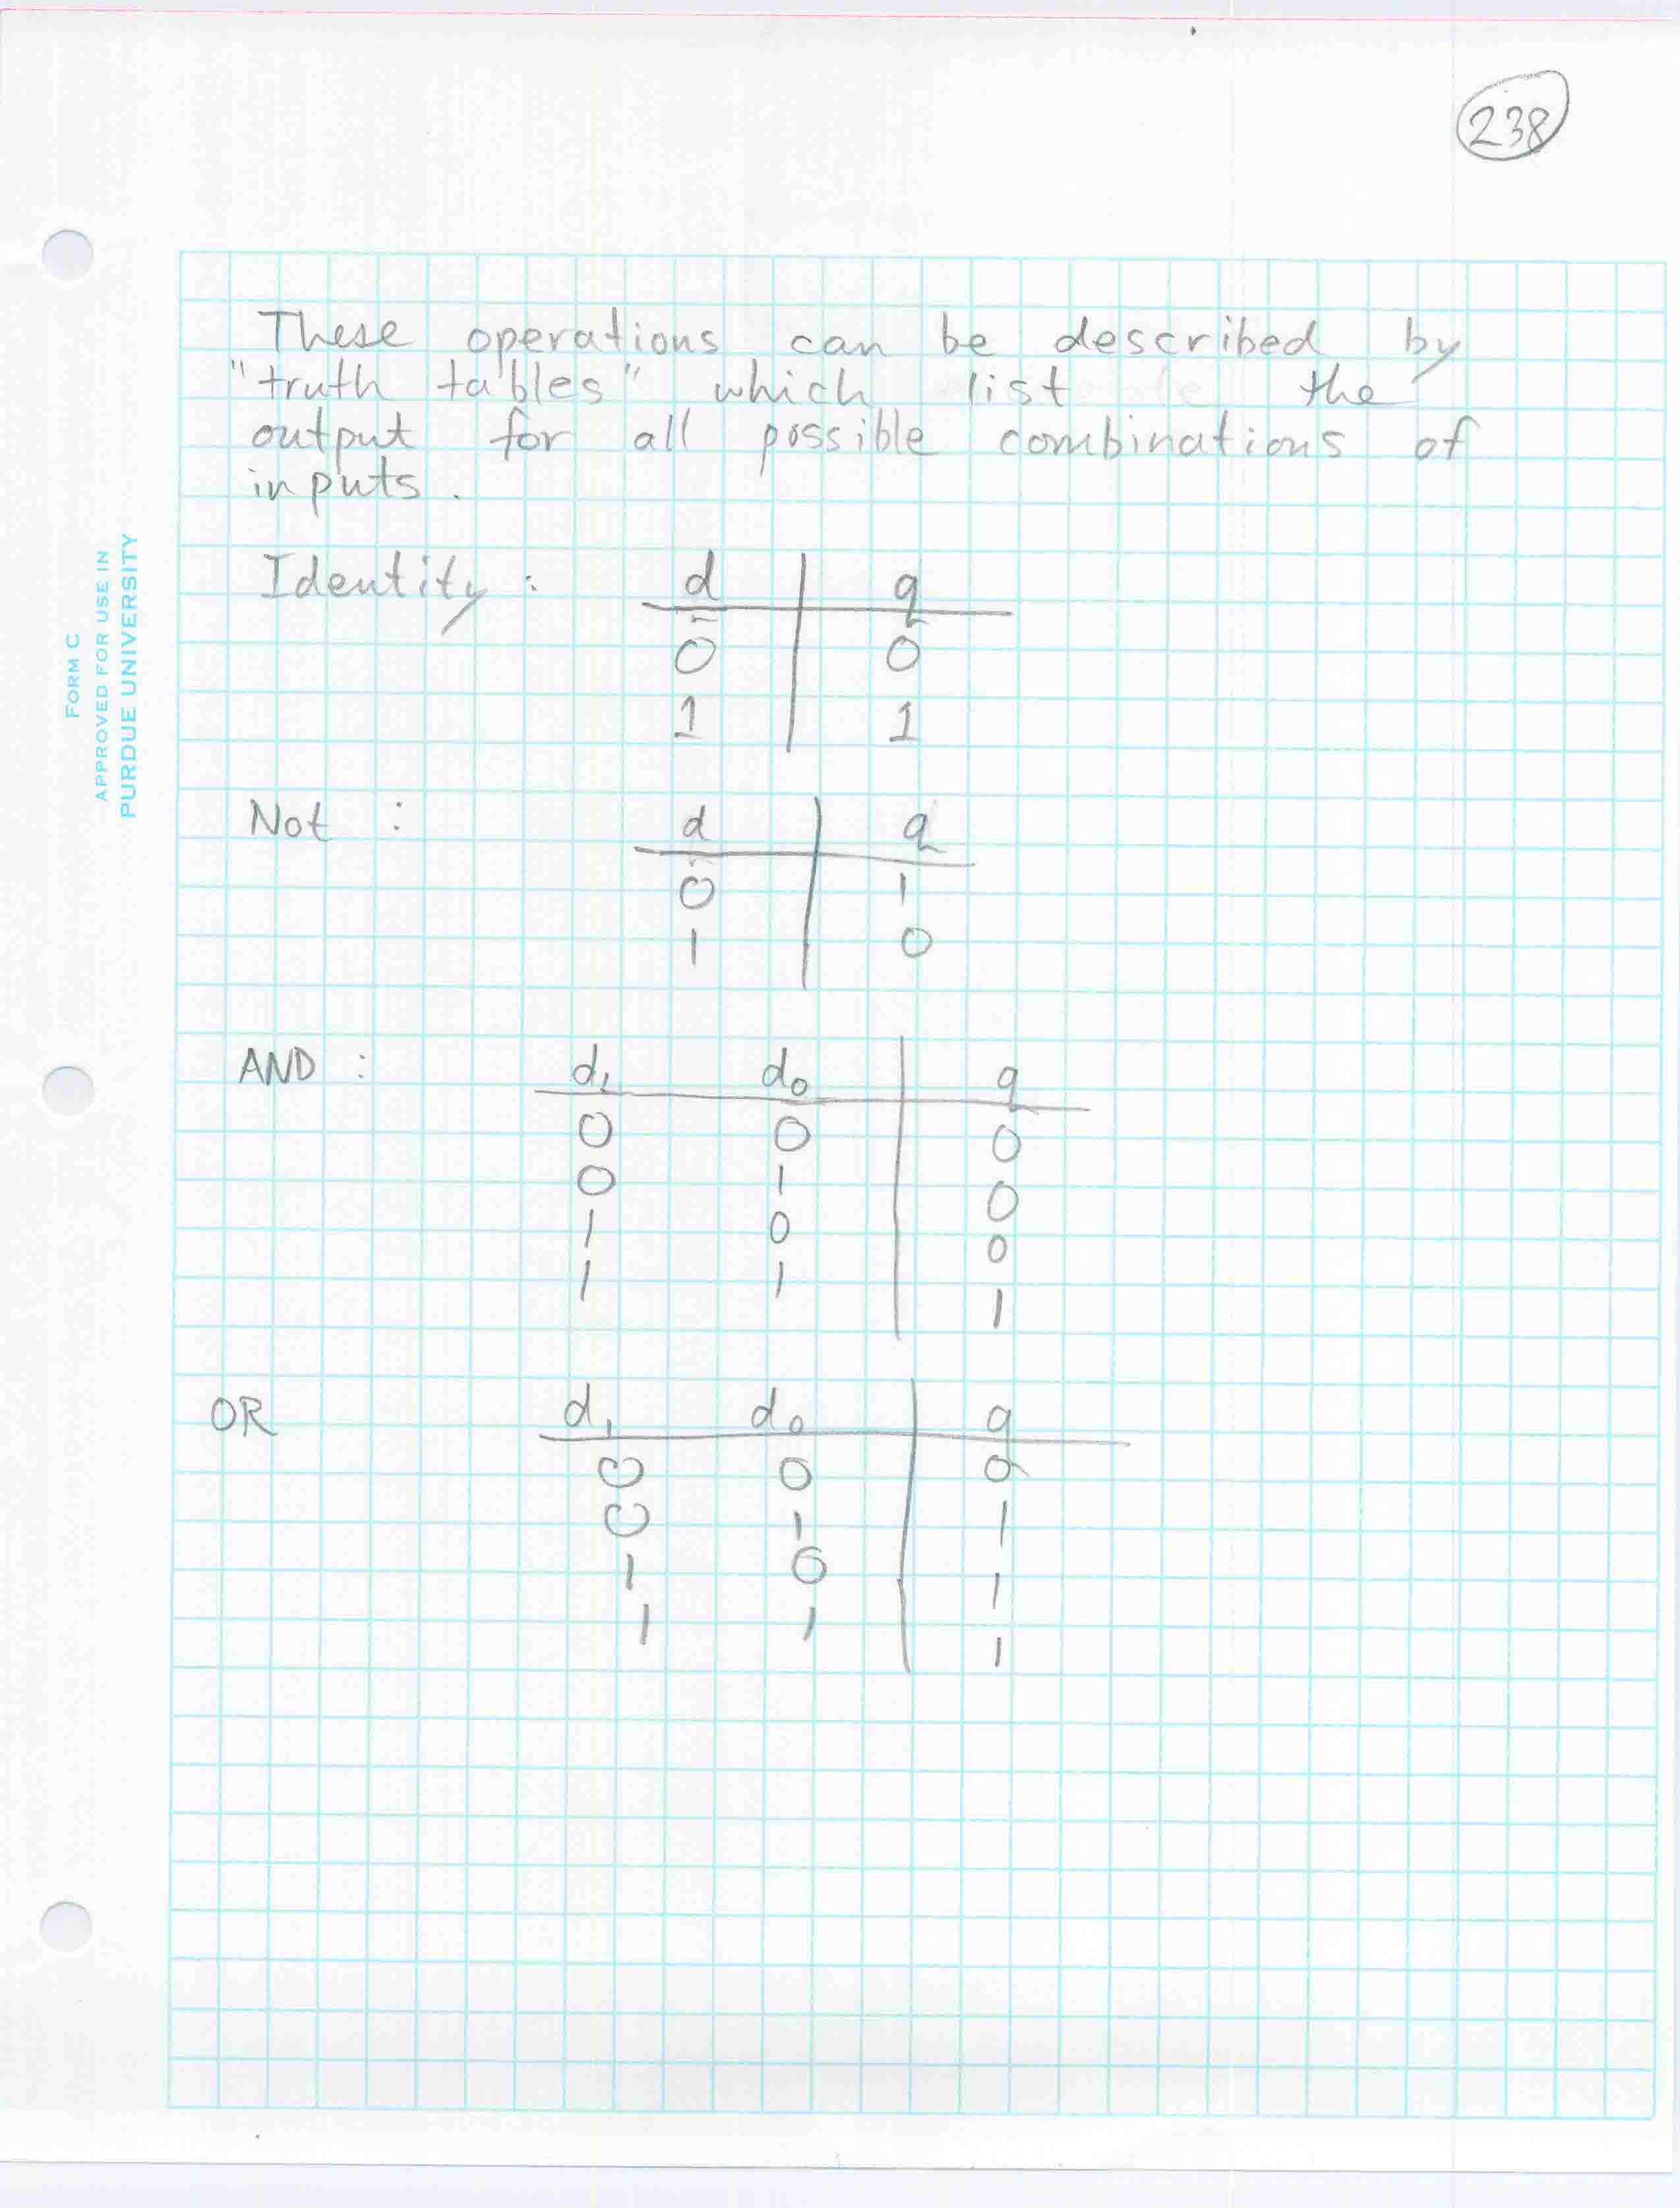 238
FORM C
APPROVED FOR USE IN
PURDUE UNIVERSITY
These operations can be described by
"truth tables" which list the
output for all possible combinations of
inputs.
Identity : d q
0 0
1 1
Not : d q
0 1
1 0
AND : d₁ d₀ q
0 0 0
0 1 0
1 0 0
1 1 1
OR d₁ d₀ q
0 0 0
0 1 1
1 0 1
1 1 1